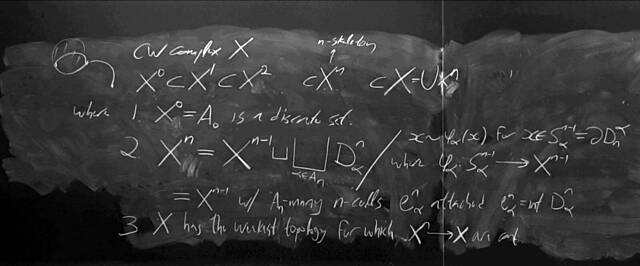 CW complex X
n-skeleton
X⁰ ⊂ X¹ ⊂ X² ⊂ Xⁿ ⊂ X = ∪ Xⁿ
where 1. X⁰ = A₀ is a discrete set.
2. Xⁿ = Xⁿ⁻¹ ⊔ ⊔_{α∈Aₙ} Dⁿ_α / x ~ φ_α(x) for x ∈ Sⁿ⁻¹_α = ∂Dⁿ_α
where φ_α: Sⁿ⁻¹_α → Xⁿ⁻¹
= Xⁿ⁻¹ w/ Aₙ-many n-cells eⁿ_α attached eⁿ_α = int Dⁿ_α
3 X has the weakest topology for which Xⁿ → X are cont